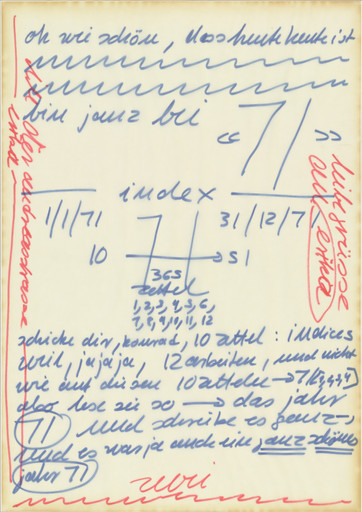 oh wie schön, dass heute heute ist
bin janz bei
« 71 »
index
1/1/71
31/12/71
10 → 51
365
zettel
1, 2, 3, 4, 5, 6,
7, 8, 9, 10, 11, 12
schicke dir, konrad, 10 zettel: indices
weil, jajaja, 12 arbeiten, und nicht
wie auf diesen 10 zetteln → 7
also lese sie so → das jahr
71 und schreibe es ganz
und es war ja auch ein janz schönes
jahr 71
linksgrüsse
aus